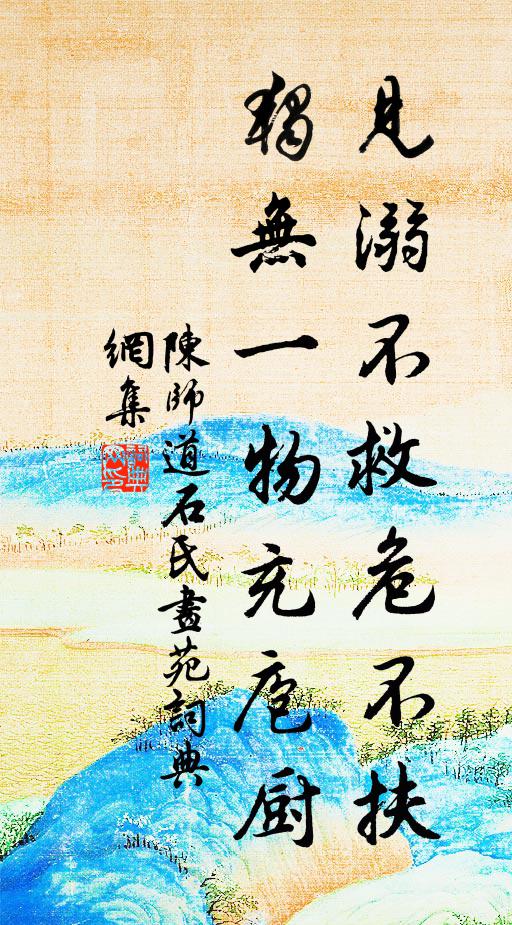 見溺不救危不扶
獨無一物充庖厨
陳師道石氏畫苑詞典
網集